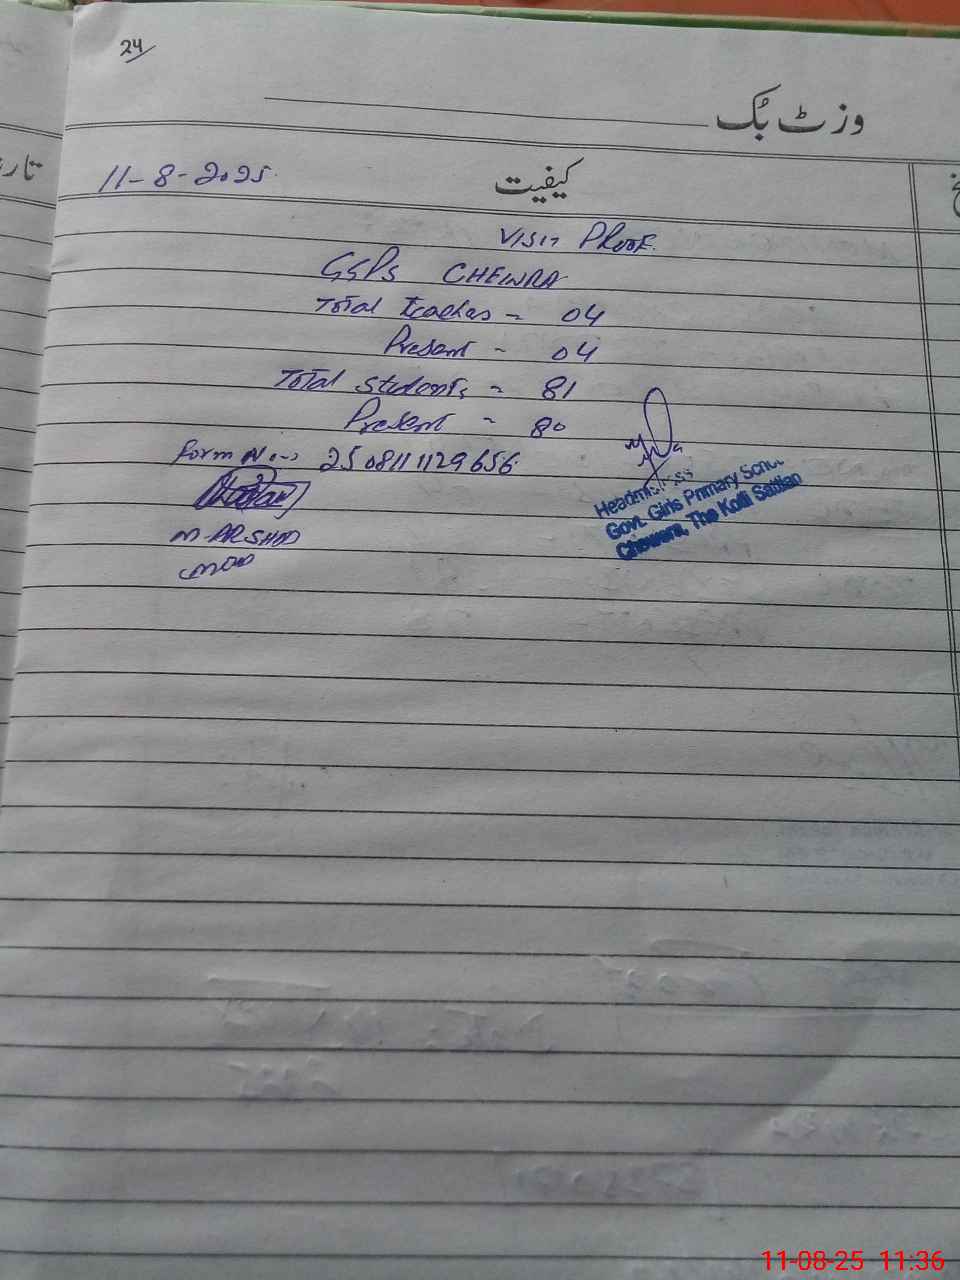 24
وزٹ بُک
تار
کیفیت
11-8-2025
VISIT PROOF.
GGPS CHEWRA
Total teaches = 04
Present - 04
Total students = 81
Present = 80
Form No -> 250811129656
M. ARSHAD
Headmistress
Govt. Girls Primary School
Chewera, The Kotli Sattian
11-08-25 11:36